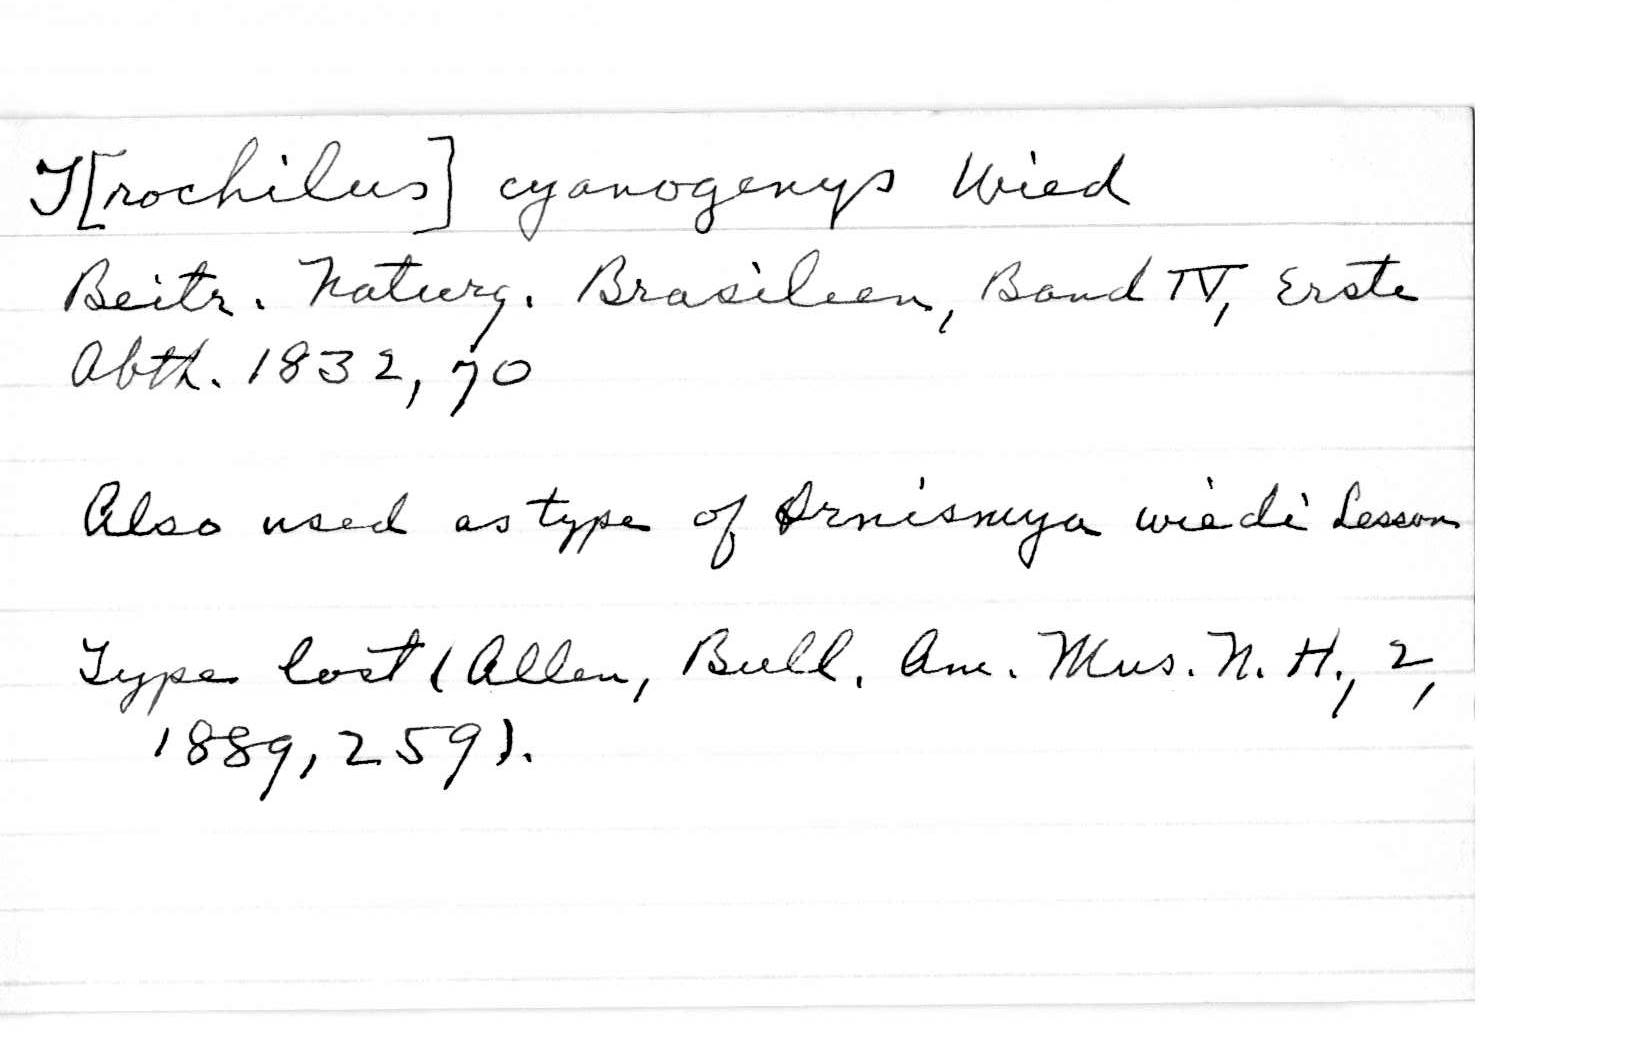 T[rochilus] cyanogenys Wied
Beitr. Naturg. Brasilien, Band IV, Erste
Abth. 1832, 70
Also used as type of Ornismya wiedi Lesson
Type lost (Allen, Bull. Am. Mus. N. H., 2,
1889, 259).